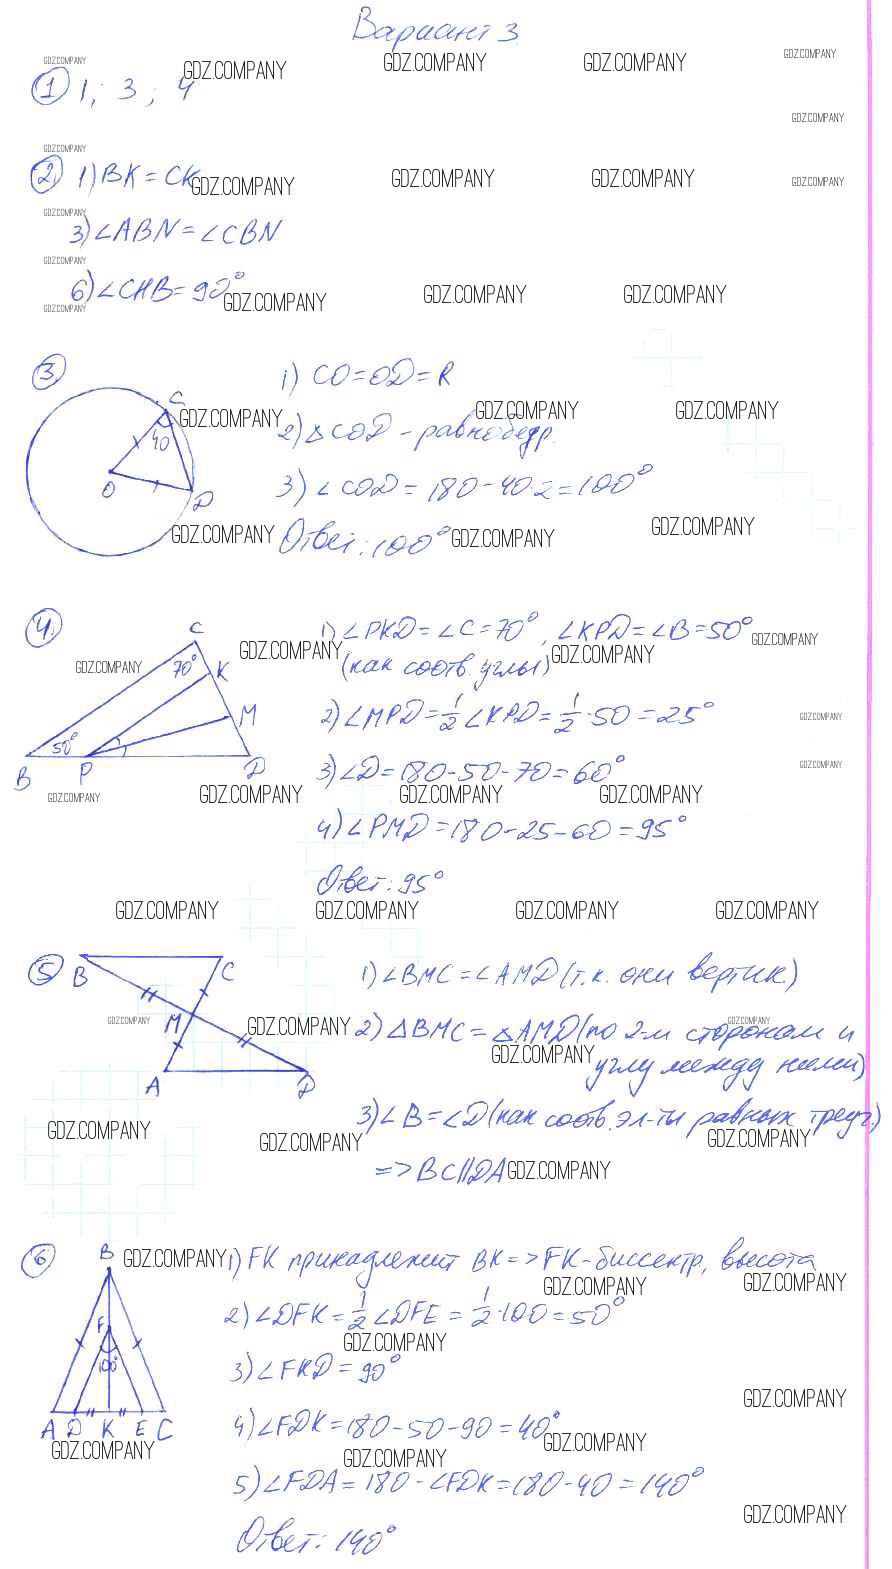 Вариант 3
GDZ.COMPANY GDZ.COMPANY GDZ.COMPANY GDZ.COMPANY GDZ.COMPANY
① 1; 3; 4
GDZ.COMPANY
GDZ.COMPANY
② 1) BK = CK
GDZ.COMPANY GDZ.COMPANY GDZ.COMPANY GDZ.COMPANY
GDZ.COMPANY
3) ∠ABN = ∠CBN
GDZ.COMPANY
6) ∠CHB = 90°
GDZ.COMPANY GDZ.COMPANY GDZ.COMPANY GDZ.COMPANY
③ 1) CO = OD = R
C
GDZ.COMPANY GDZ.COMPANY GDZ.COMPANY
40
2) △COD - равнобедр.
O
D
3) ∠COD = 180 - 40·2 = 100°
GDZ.COMPANY GDZ.COMPANY GDZ.COMPANY
Ответ: 100°
④ 1) ∠PKD = ∠C = 70°, ∠KPD = ∠B = 50°
(как соотв. углы)
GDZ.COMPANY GDZ.COMPANY GDZ.COMPANY GDZ.COMPANY
C
70°
K
M
50°
B
P
D
2) ∠MPD = 1/2 ∠KPD = 1/2 · 50 = 25°
GDZ.COMPANY
3) ∠D = 180 - 50 - 70 = 60°
GDZ.COMPANY
GDZ.COMPANY GDZ.COMPANY GDZ.COMPANY GDZ.COMPANY
4) ∠PMD = 180 - 25 - 60 = 95°
Ответ: 95°
GDZ.COMPANY GDZ.COMPANY GDZ.COMPANY GDZ.COMPANY
⑤ 1) ∠BMC = ∠AMD (т.к. они вертик)
B
C
M
A
D
GDZ.COMPANY GDZ.COMPANY GDZ.COMPANY
2) △BMC = △AMD (по 2-м сторонам и
GDZ.COMPANY
углу между ними)
3) ∠B = ∠D (как соотв. эл-ты равных треуг.)
GDZ.COMPANY GDZ.COMPANY GDZ.COMPANY
=> BC||DA
GDZ.COMPANY
⑥ 1) FK принадлежит BK => FK - биссектр, высота
GDZ.COMPANY GDZ.COMPANY GDZ.COMPANY
B
F
100°
A D K E C
2) ∠DFK = 1/2 ∠DFE = 1/2 · 100 = 50°
GDZ.COMPANY
3) ∠FKD = 90°
GDZ.COMPANY
4) ∠FDK = 180 - 50 - 90 = 40°
GDZ.COMPANY GDZ.COMPANY GDZ.COMPANY
5) ∠FDA = 180 - ∠FDK = 180 - 40 = 140°
GDZ.COMPANY
Ответ: 140°